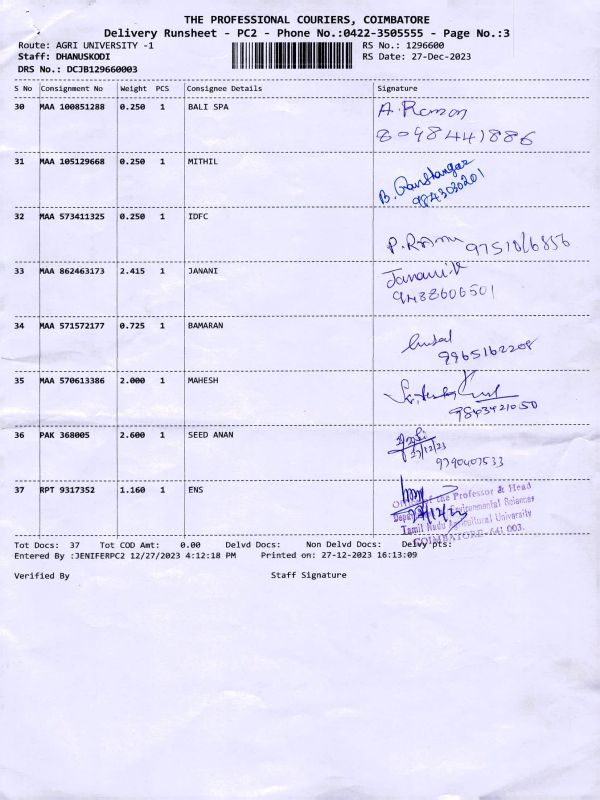 THE PROFESSIONAL COURIERS, COIMBATORE
Delivery Runsheet - PC2 - Phone No.:0422-3505555 - Page No.:3
Route: AGRI UNIVERSITY -1 RS No.: 1296600
Staff: DHANUSKODI RS Date: 27-Dec-2023
DRS No.: DCJB129660003
S No Consignment No Weight PCS Consignee Details Signature
30 MAA 100851288 0.250 1 BALI SPA A. Raman
8048441886
31 MAA 105129668 0.250 1 MITHIL B.
9843030201
32 MAA 573411325 0.250 1 IDFC P.
33 MAA 862463173 2.415 1 JANANI Janani.K
9488606501
34 MAA 571572177 0.725 1 BAMARAN
9965162208
35 MAA 570613386 2.000 1 MAHESH
9843421050
36 PAK 368005 2.600 1 SEED ANAN
27/12/23
9790407533
37 RPT 9317352 1.160 1 ENS
Office of the Professor & Head
Department of Environmental Sciences
Tamil Nadu Agricultural University
COIMBATORE - 641 003.
Tot Docs: 37 Tot COD Amt: 0.00 Delvd Docs: Non Delvd Docs: Delvy pts:
Entered By :JENIFERPC2 12/27/2023 4:12:18 PM Printed on: 27-12-2023 16:13:09
Verified By Staff Signature